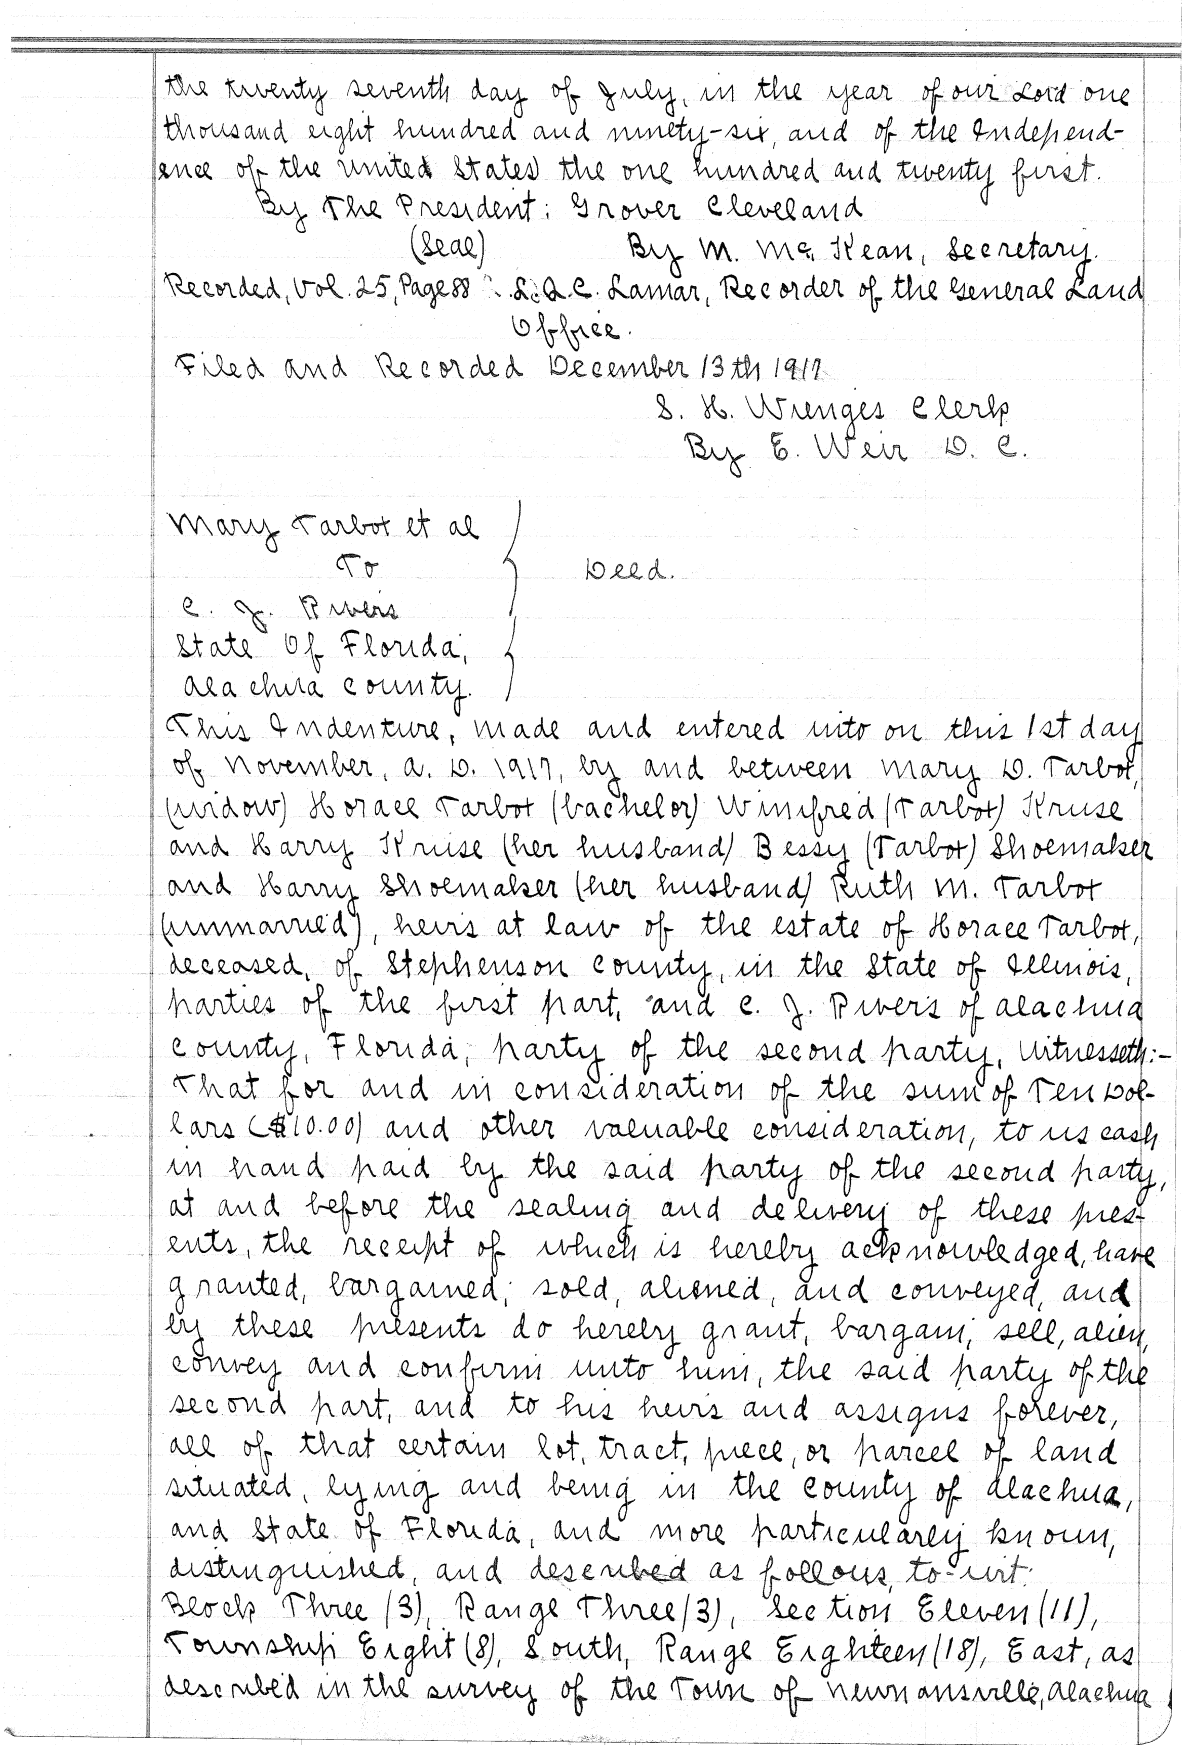 the twenty seventh day of July, in the year of our Lord one
thousand eight hundred and ninety-six, and of the Independ-
ence of the United States the one hundred and twenty first.
By The President: Grover Cleveland
(Seal) By M. Mc. Kean, Secretary.
Recorded, Vol. 25, Page 88 L. Q. C. Lamar, Recorder of the General Land
Office.
Filed and Recorded December 13th 1917
S. H. Wienges Clerk
By E. Weir D. C.
Mary Tarbot et al
To
Deed.
C. J. Rivers
State Of Florida,
Alachua County.
This Indenture, made and entered into on this 1st day
of November, A. D. 1917, by and between Mary D. Tarbot,
(widow) Horace Tarbot (bachelor) Winifred (Tarbot) Kruse
and Harry Kruse (her husband) Bessy (Tarbot) Shoemaker
and Harry Shoemaker (her husband) Ruth M. Tarbot
(unmarried), heirs at law of the estate of Horace Tarbot,
deceased, of Stephenson County, in the State of Illinois,
parties of the first part, and C. J. Rivers of Alachua
County, Florida, party of the second party, Witnesseth:-
That for and in consideration of the sum of Ten Dol-
lars ($10.00) and other valuable consideration, to us cash
in hand paid by the said party of the second party,
at and before the sealing and delivery of these pres-
ents, the receipt of which is hereby acknowledged, have
granted, bargained, sold, aliened, and conveyed, and
by these presents do hereby grant, bargain, sell, alien,
convey and confirm unto him, the said party of the
second part, and to his heirs and assigns forever,
all of that certain lot, tract, piece, or parcel of land
situated, lying and being in the County of Alachua,
and State of Florida, and more particularly known,
distinguished, and described as follows, to-wit:
Block Three (3), Range Three (3), Section Eleven (11),
Township Eight (8), South, Range Eighteen (18), East, as
described in the survey of the Town of Newnansville, Alachua